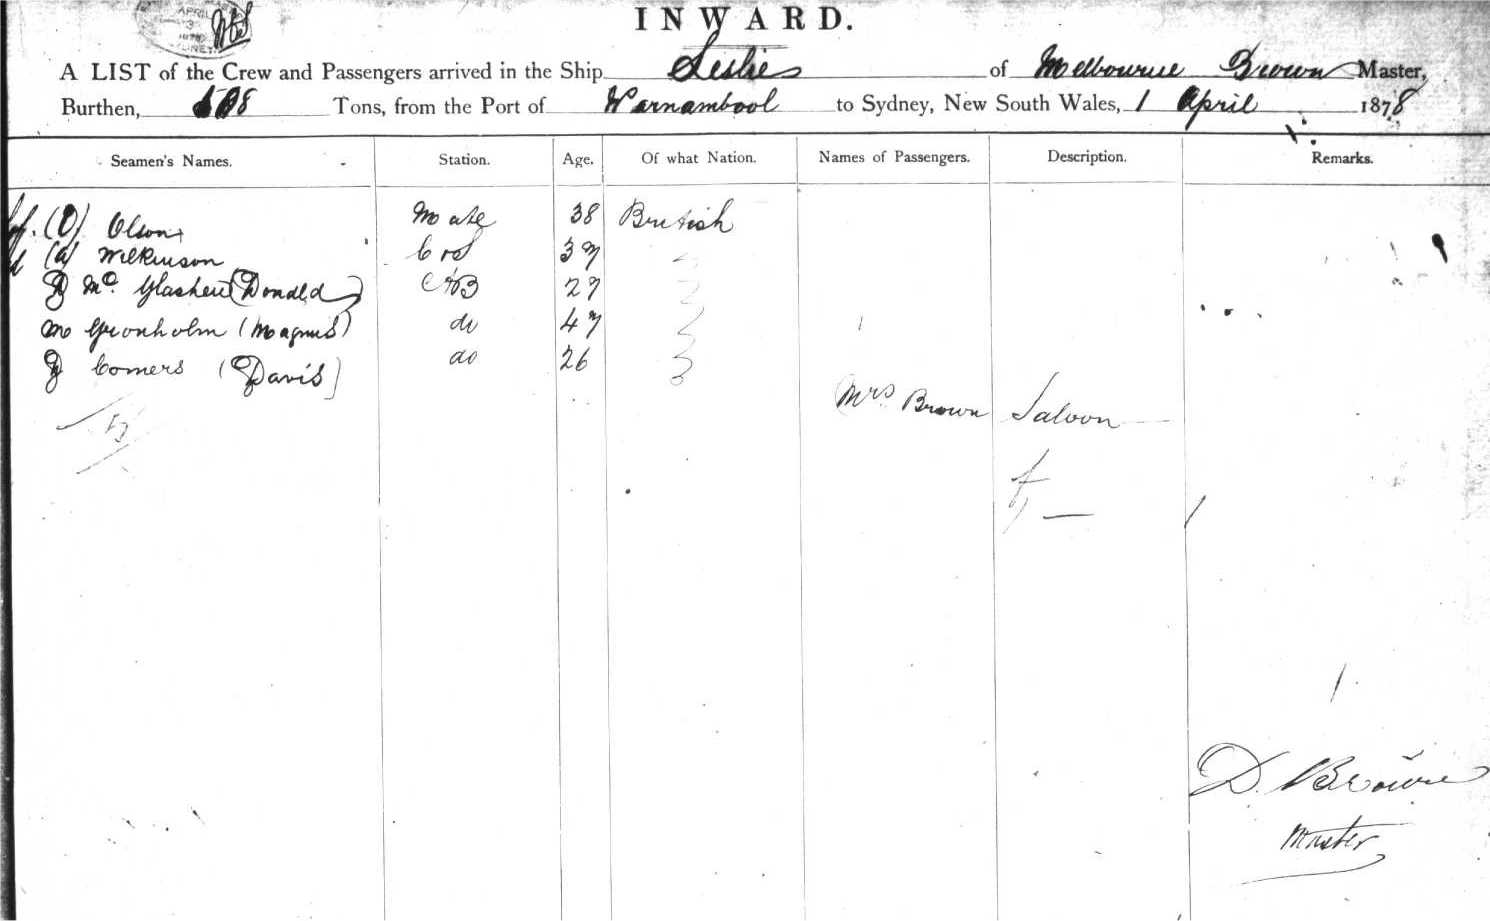 APRIL
INWARD.
A LIST of the Crew and Passengers arrived in the Ship Leslie of Melbourne Brown Master,
Burthen, Tons, from the Port of Warnambool to Sydney, New South Wales, 1 April 1878
Seamen's Names. Station. Age. Of what Nation. Names of Passengers. Description. Remarks.
(O) Olson Mate 38 British
(a) Wilkinson 37
D Mc. Glashen (Donald) AB 27
M Gronholm (Magnus) do 47
D Comers (Davis) do 26
Mrs Brown Saloon
D. Brown
Master